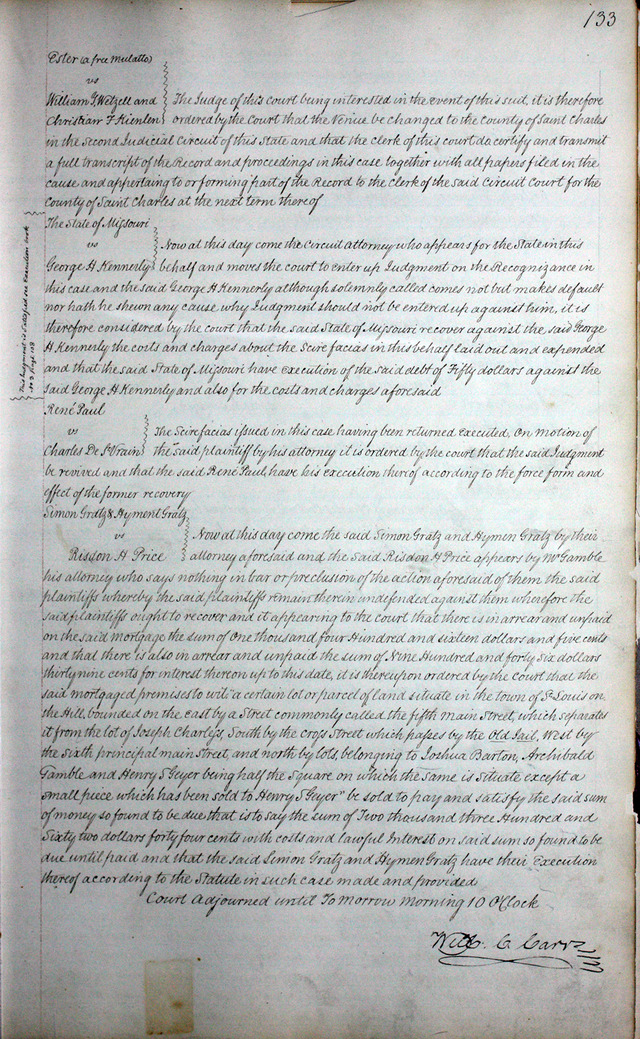 133
Ester (a free mulatto)
vs
William T. Wetzell and } The Judge of this court being interested in the event of this suit, it is therefore
Christian F Kienlen } ordered by the Court that the Venue be changed to the County of Saint Charles
in the Second Judicial Circuit of this State and that the clerk of this court do certify and transmit
a full transcript of the Record and proceedings in this case together with all papers filed in the
cause and appertaing to or forming part of the Record to the clerk of the said Circuit Court for the
County of Saint Charles at the next term there of
The State of Missouri
vs } Now at this day come the Circuit attorney who appears for the State in this
George H Kennerly } behalf and moves the court to enter up Judgment on the Recognizance in
this case and the said George H Kennerly although solemnly called comes not but makes default
nor hath he shewn any cause why Judgment should not be entered up against him, it is
therefore considered by the court that the said State of Missouri recover against the said George
H Kennerly the costs and charges about the Scire facias in this behalf laid out and expended
and that the said State of Missouri have execution of the said debt of Fifty dollars against the
said George H Kennerly and also for the costs and charges aforesaid
This Judgment is Satisfied see Execution book
René Paul
vs } The Scire facias issued in this case having been returned Executed, On motion of
Charles De St Vrain } the said plaintiff by his attorney it is ordered by the court that the said Judgment
be revived and that the said René Paul have his execution thereof according to the force form and
effect of the former recovery
Simon Gratz & Hyment Gratz
vs } Now at this day come the said Simon Gratz and Hymen Gratz by their
Risdon H Price } attorney aforesaid and the said Risdon H Price appears by Mr Gamble
his attorney who says nothing in bar or preclusion of the action aforesaid of them the said
plaintiffs whereby the said plaintiffs remain therein undefended against them wherefore the
said plaintiffs ought to recover and it appearing to the court that there is in arrear and unpaid
on the said mortgage the sum of One thousand four Hundred and sixteen dollars and five cents
and that there is also in arrear and unpaid the sum of Nine Hundred and forty Six dollars
thirty nine cents for interest thereon up to this date, it is thereupon ordered by the court that the
said mortgaged premises to wit "a certain lot or parcel of land situate in the town of St Louis on
the Hill, bounded on the East by a Street commonly called the fifth main Street, which separates
it from the lot of Joseph Charless, South by the cross Street which passes by the Old Jail, West by
the Sixth principal main Street, and north by lots, belonging to Joshua Barton, Archibald
Gamble and Henry S Geyer being half the Square on which the same is situate except a
small piece which has been sold to Henry S Geyer" be sold to pay and satisfy the said sum
of money so found to be due that is to say the sum of Two thousand three Hundred and
Sixty two dollars forty four cents with costs and lawful Interest on said sum so found to be
due until paid and that the said Simon Gratz and Hymen Gratz have their Execution
thereof according to the Statute in such case made and provided
Court Adjourned until To Morrow morning 10 O'Clock
Will. C. Carr